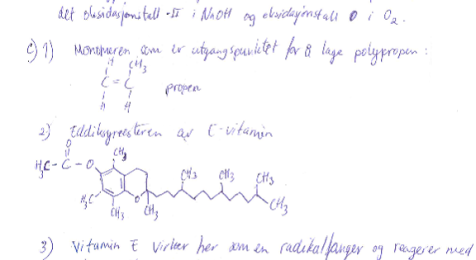 det oksidasjonstall -II i NaOH og oksidasjonstall 0 i O₂.
c) 1) Monomeren som er utgangspunktet for å lage polypropen:
H CH₃
C = C propen
H H
2) Eddiksyreesteren av E-vitamin
O
H₃C - C - O CH₃
CH₃ CH₃ CH₃
H₃C O CH₃
CH₃ CH₃
3) Vitamin E virker her som en radikalfanger og reagerer med